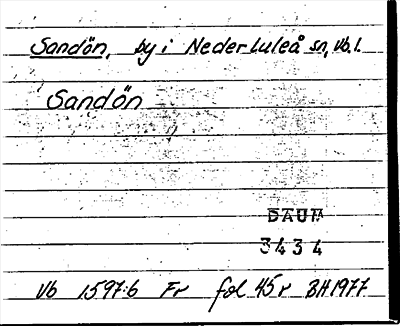 Sandön, by i Nederluleå sn, Vb.l.
Sandön
DAUM
3434
Vb 1597:6 Fr fol 45r BH1977